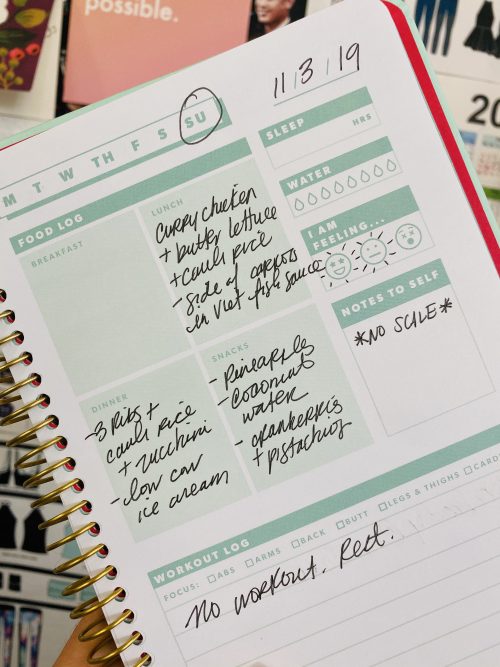 possible.
11/3/19
M T W TH F S SU
SLEEP
HRS
WATER
I AM
FEELING...
NOTES TO SELF
*NO SCALE*
FOOD LOG
BREAKFAST
LUNCH
CURRY CHICKEN
+ butter lettuce
+ cauli rice
- side of carrots
in viet fish sauce
DINNER
- 3 Ribs +
cauli rice
+ zucchini
- low cow
ice cream
SNACKS
- Pineapple
- coconut
water
- crankerris
+ pistachios
WORKOUT LOG
FOCUS: ABS ARMS BACK BUTT LEGS & THIGHS CARD
NO WORKOUT. Rest.
20